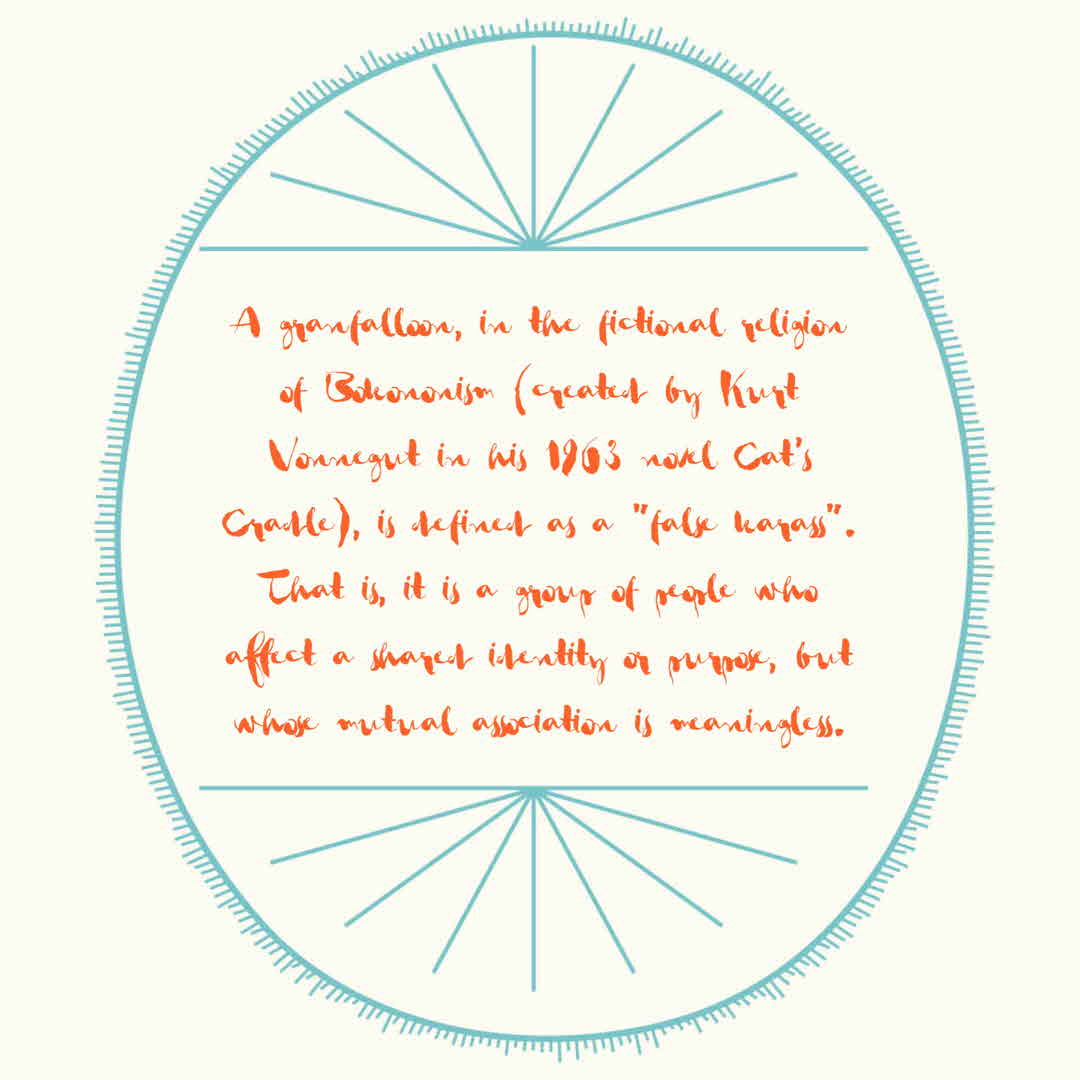 A granfalloon, in the fictional religion
of Bokononism (created by Kurt
Vonnegut in his 1963 novel Cat's
Cradle), is defined as a "false karass".
That is, it is a group of people who
affect a shared identity or purpose, but
whose mutual association is meaningless.